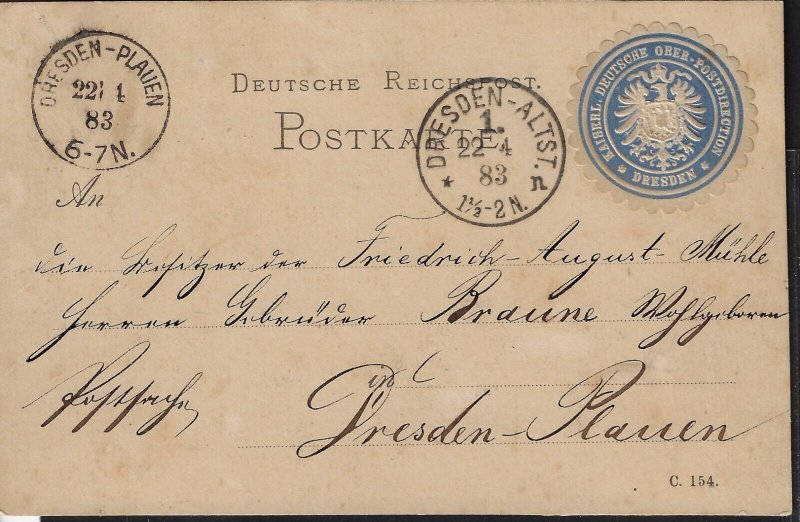 DEUTSCHE REICHSPOST.
POSTKARTE.
DRESDEN-PLAUEN
22 4
83
6-7N.
DRESDEN-ALTST.
1.
22 4
83
* n
1½-2N.
KAISERL. DEUTSCHE OBER-POSTDIRECTION
* DRESDEN *
An
die Besitzer der Friedrich-August-Mühle
Herren Gebrüder Braune Wohlgeboren
Postsache
in
Dresden-Plauen
C. 154.